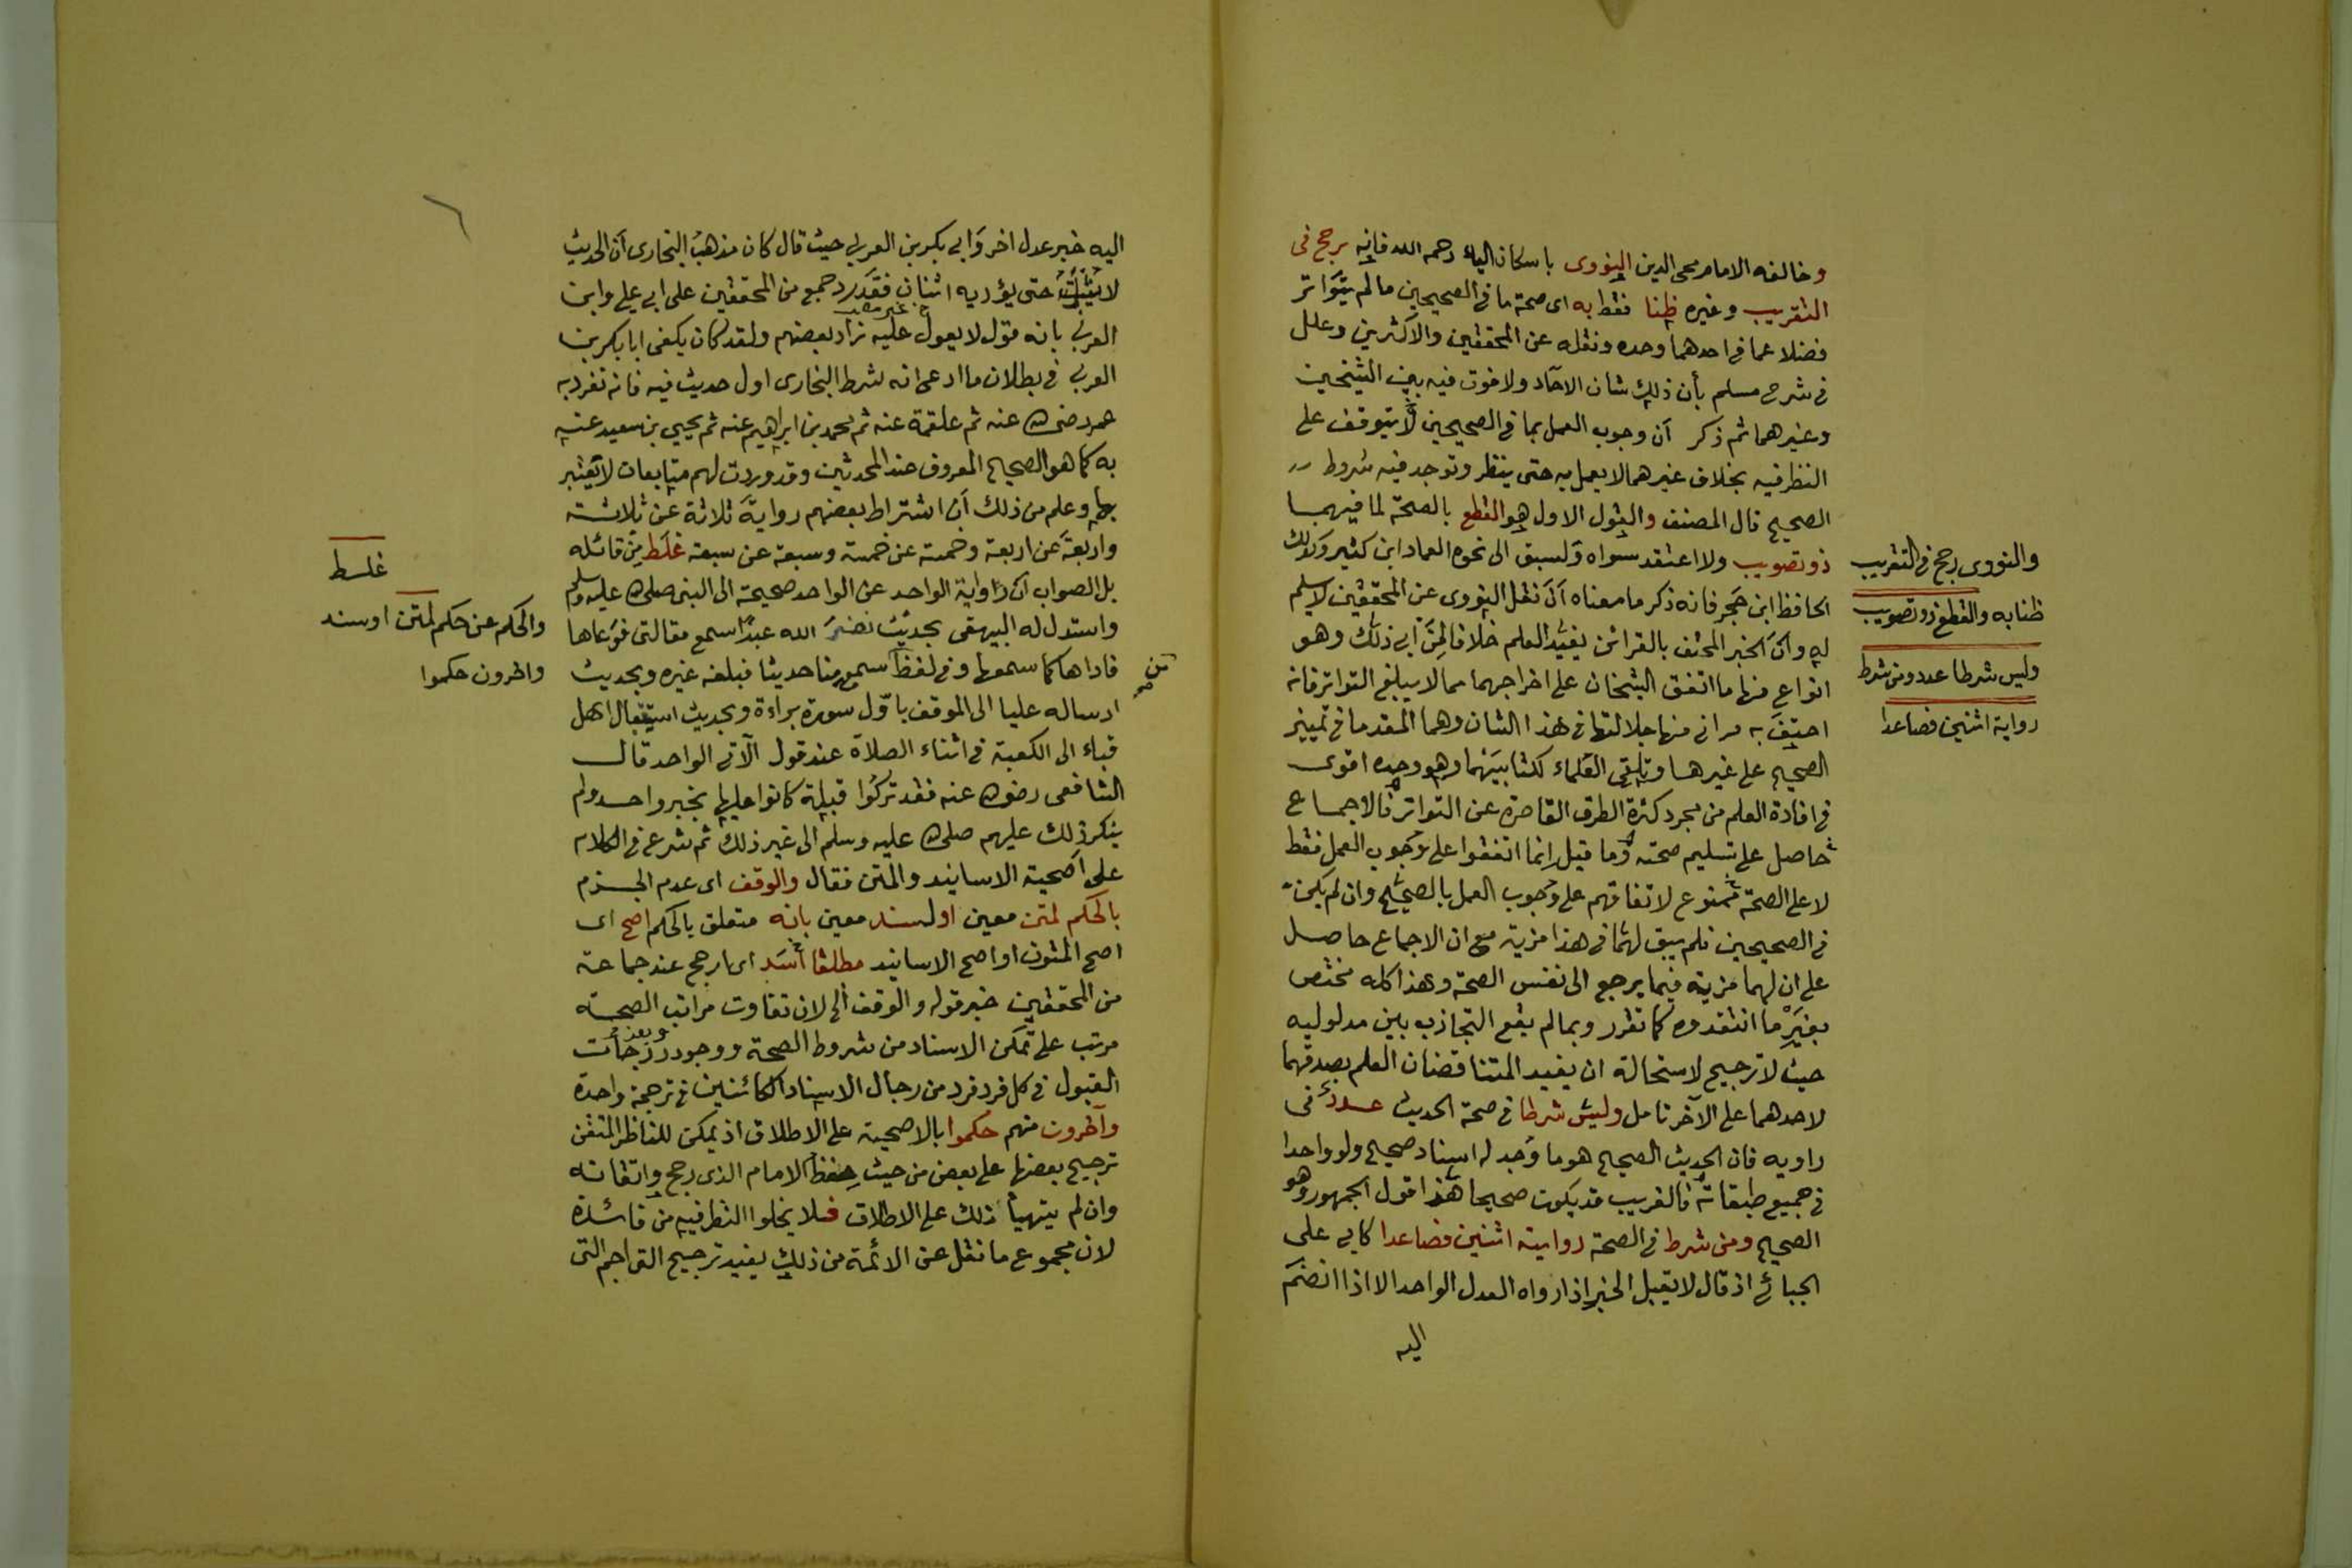 وخالفه الامام محى الدين النووى باسكان الياء رحمه الله فانه رجح فى
التقريب وغيره ظنا فقط به اى صحة ما فى الصحيحين مالم يتواتر
فضلا عما فى احدهما وحده ونقله عن المحققين والاكثرين وعلل
فى شرح مسلم بأن ذلك شان الآحاد ولا فرق فيه بين الشيخين
وغيرهما ثم ذكر أن وجوب العمل بما فى الصحيحين لا يتوقف على
النظر فيه بخلاف غيرهما لا يعمل به حتى ينظر وتوجد فيه شروط
الصحيح قال المصنف والقول الاول هو القطع بالصحة لما فيهما
ذو تصويب ولا اعتقد سواه ولسبق الى نحوه العماد ابن كثير وكذلك
الحافظ ابن حجر فانه ذكر ما معناه أن نقل النووى عن المحققين لا يسلم
له وأن الخبر المحتف بالقرائن يفيد العلم خلافا لمن أبى ذلك وهو
انواع منها ما اتفق الشيخان على اخراجهما مما لا يبلغ التواتر فانه
احتف به قرائن منها جلالتهما فى هذا الشان وهما المقدما فى تمييز
الصحيح على غيرهما وتلقى العلماء لكتابيهما وهو وحده اقوى
فى افادة العلم من مجرد كثرة الطرق القاصرة عن التواتر فالاجماع
حاصل على تسليم صحته وما قيل انما اتفقوا على وجوب العمل فقط
لا على الصحة ممنوع لاتفاقهم على وجوب العمل بالصحيح وان لم يكن
فى الصحيحين فلم يبق لهما فى هذا مزية مع ان الاجماع حاصل
على ان لهما مزية فيما يرجع الى نفس الصحة وهذا كله مختص
بغير ما انتقدوه كما تقرر وبما لم يقع التجاذب بين مدلوليه
حيث لا ترجيح لاستحالة ان يفيد المتناقضان العلم بصدقهما
لاحدهما على الآخر تامل وليس شرطا فى صحة الحديث عدد فى
راويه فان الحديث الصحيح هو ما وجد له اسناد صحيح ولو واحدا
فى جميع طبقاته فالغريب قد يكون صحيحا هذا قول الجمهور وهو
الصحيح ومن شرط فى الصحة رواية اثنين فصاعدا كابى على
الجبائى اذ قال لا يقبل الخبر اذا رواه العدل الواحد الا اذا انضم
اليه
والنووى رجح فى التقريب
ظنا به والقطع ذو تصويب
وليس شرطا عدد ومن شرط
رواية اثنين فصاعدا
اليه خبر عدل اخر وابى بكر بن العربى حيث قال كان مذهب البخارى أن الحديث
لا يثبت حتى يرويه اثنان فقد رد جمع من المحققين على ابى على وابن
العربى بانه قول لا يعول عليه زاد بعضهم ولقد كان يكفى ابا بكر بن
العربى فى بطلان ما ادعى انه شرط البخارى اول حديث فيه فانه تفرد به
عمر رضى الله عنه ثم علقمة عنه ثم محمد بن ابراهيم عنه ثم يحيى بن سعيد عنه
به كما هو الصحيح المعروف عند المحدثين وقد وردت لهم متابعات لا يعتبر
بها وعلم من ذلك أن اشتراط بعضهم رواية ثلاثة عن ثلاثة
واربعة عن اربعة وخمسة عن خمسة وسبعة عن سبعة غلط من قائله
بل الصواب أن رواية الواحد عن الواحد صحيحة الى النبى صلى الله عليه وسلم
واستدل له البيهقى بحديث نضر الله عبدا سمع مقالتى فوعاها
فاداها كما سمعها وفى لفظ سمع منا حديثا فبلغه غيره وبحديث
ارساله عليا الى الموقف باول سورة براءة وبحديث استقبال اهل
قباء الى الكعبة فى اثناء الصلاة عند قول الآتى الواحد قال
الشافعى رضى الله عنه فقد تركوا قبلة كانوا عليها بخبر واحد ولم
ينكر ذلك عليهم صلى الله عليه وسلم الى غير ذلك ثم شرع فى الكلام
على أصحية الاسانيد والمتن فقال والوقف اى عدم الجزم
بالحكم لمتن معين او لسند معين بانه متعلق بالحكم اصح اى
اصح المتون او اصح الاسانيد مطلقا أسد اى ارجح عند جماعة
من المحققين خبر قوله والوقف الخ لان تفاوت مراتب الصحة
مرتب على تمكن الاسناد من شروط الصحة ووجود درجات
القبول فى كل فرد فرد من رجال الاسناد الكائنين فى ترجمة واحدة
وآخرون منهم حكموا بالاصحية على الاطلاق اذ يمكن للناظر المتفنن
ترجيح بعضها على بعض من حيث حفظ الامام الذى رجح واتقانه
وان لم يتهيأ ذلك على الاطلاق فلا يخلوا النظر فيه من فائدة
لان مجموع ما نقل عن الائمة من ذلك يفيد ترجيح التراجم التى
غلط
والحكم عن حكم لمتن او سند
واخرون حكموا